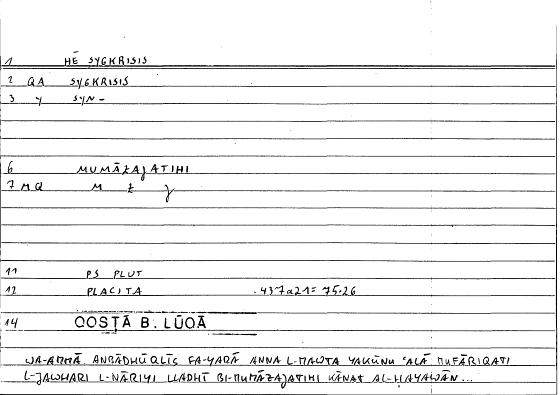 1 HĒ SYGKRISIS
2 QA SYGKRISIS
3 Y SYN-
6 MUMĀZAJATIHI
7 MQ M Z J
11 PS PLUT
12 PLACITA .437a21= 75.26
14 QOSṬĀ B. LŪQĀ
WA-AMMĀ ANBĀDHŪQLĪS FA-YARĀ ANNA L-MAWTA YAKŪNU ʿALĀ MUFĀRIQATI
L-JAWHARI L-NĀRIYI LLADHĪ BI-MUMĀZAJATIHI KĀNAT AL-ḤAYAWĀN...